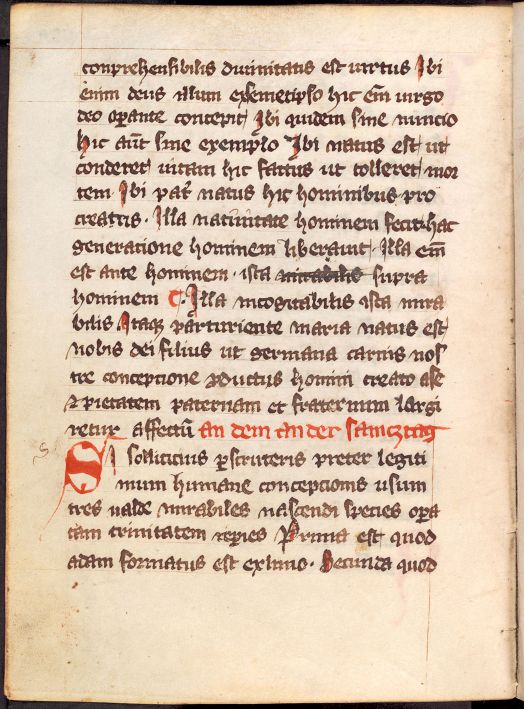 conprehensibilis diuinitatis est uirtus Ibi
enim deus illum exsemetipso hic em̄ uirgo
deo oꝑante concepit Ibi quidem sine nuncio
hic aūt sine exemplo Ibi natus est ut
conderet uitam hic factus ut tolleret mor
tem Ibi pat̄ natus hic hominibus pro
creatus · Illa natiuitate hominem fecit hac
generatione hominem liberauit · Illa em̄
est ante hominem · ista mirabilis supra
hominem Illa incogitabilis ista mira
bilis Itaqꝫ parturiente maria natus est
nobis dei filius ut germana carnis nos
tre conceptione ꝓductus homini creato
pietatem paternam et fraternum largi
retur affectū an dem ander sancztag
SI sollicicius ꝑscruteris preter legiti
mum humane conceptionis usum
tres ualde mirabiles nascendi species oꝑa
tam trinitatem reꝑies Prima est quod
adam formatus est exlimo · Secunda quod
s